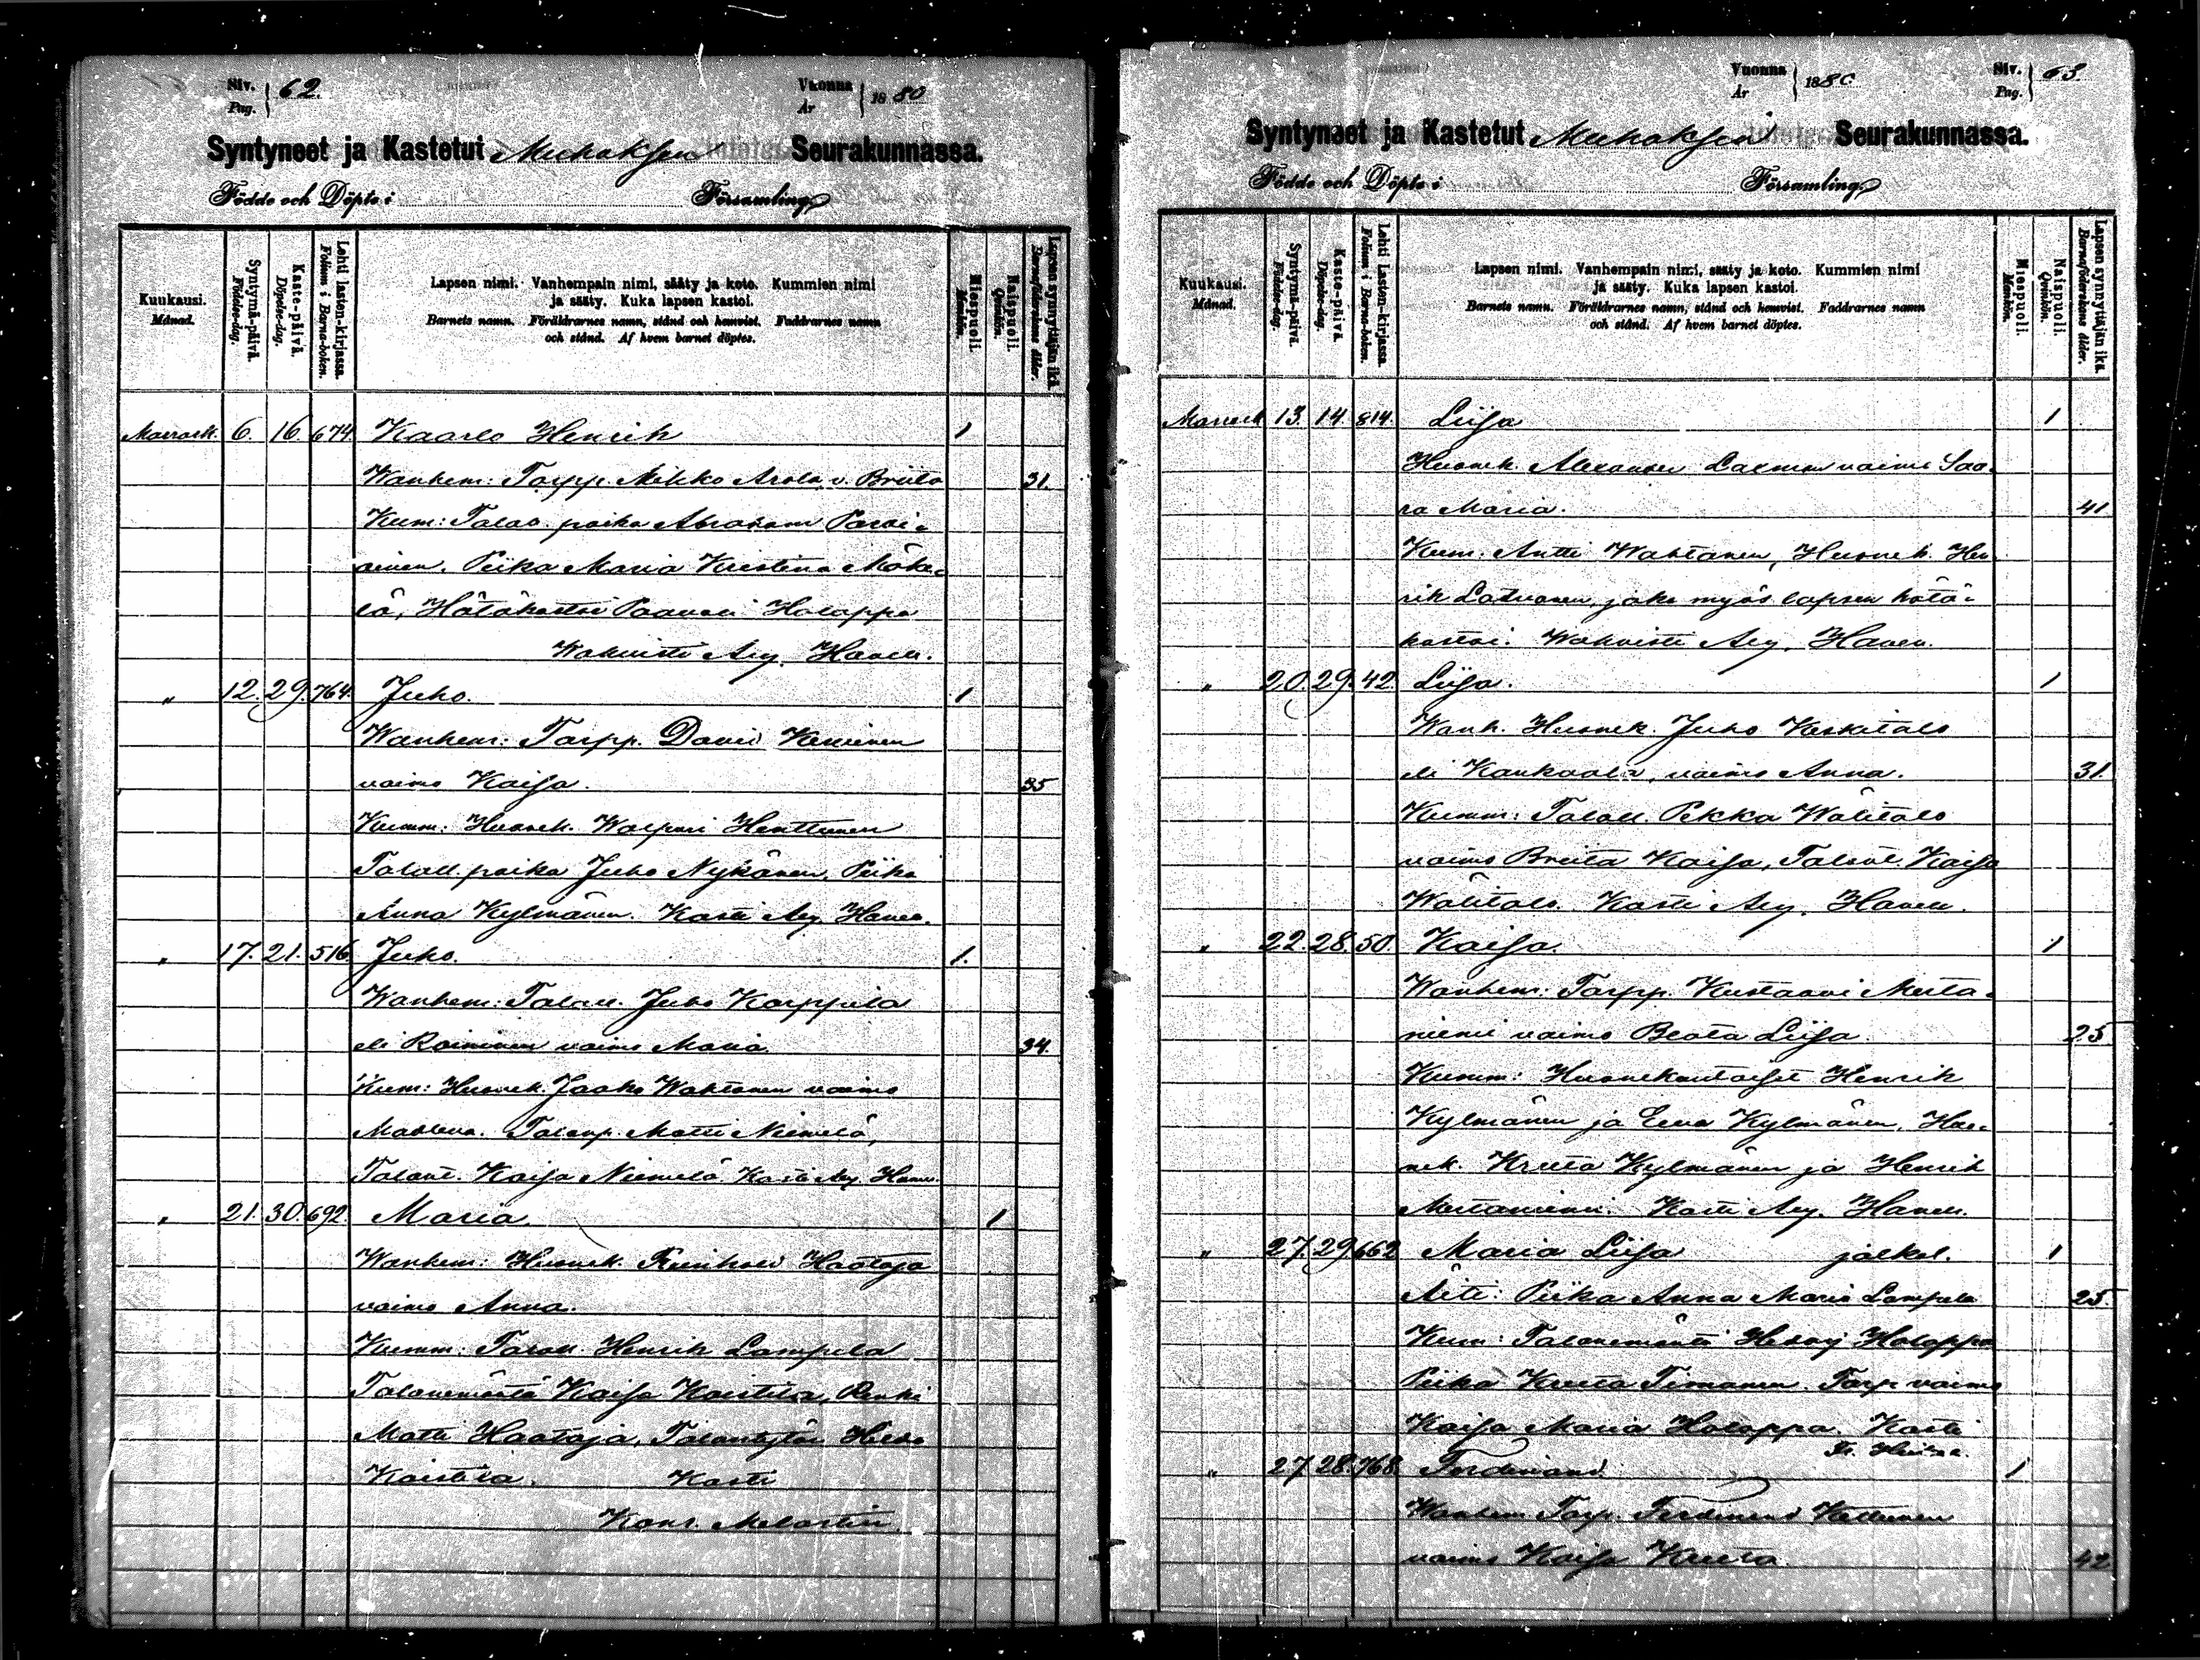 Siv. Pag. 62.
Vuonna År 1880
Syntyneet ja Kastetut Muhoksen Seurakunnassa.
Födde och Döpte i Församling
Kuukausi. Månad.
Syntymä-päivä. Födelse-dag.
Kaste-päivä. Döpelse-dag.
Lehti lasten-kirjassa. Folium i Barna-boken.
Lapsen nimi. Vanhempain nimi, sääty ja koto. Kummien nimi
ja sääty. Kuka lapsen kastoi.
Barnets namn. Föräldrarnes namn, stånd och hemvist. Faddrarnes namn
och stånd. Af hvem barnet döptes.
Miespuoli. Mankön.
Naispuoli. Qvinkön.
Lapsen synnyttäjän ikä. Barnaföderskans ålder.
Marrask. 6. 16. 674. Kaarlo Henrik 1
Wanhem: Torpp. Mikko Arola v. Briita 31.
Kum: Talas. poika Abraham Parvi-
ainen. Piika Maria Kristina Mäke-
lä, Hätäkastoi Paavali Holappa
Wahvisti Arm. Haven.
" 12. 29. 764. Juho. 1
Wanhem: Torpp. David Keränen
vaimo Kaisa. 35
Kumm: Huonek. Walpuri Henttunen
Talall. poika Juho Nykänen, Piika
Anna Kylmänen. Kasti Arm. Haven.
" 17. 21. 516. Juho. 1.
Wanhem: Talall. Juho Karppila
eli Roininen vaimo Maria. 34.
Kum: Huonek. Jaako Wahtanen vaimo
Madlena. Talanp. Matti Niemelä,
Talant. Kaisa Niemelä Kasti Arm. Haven.
" 21. 30. 692. Maria 1
Wanhem: Huonek. Reinhold Haataja
vaimo Anna.
Kumm: Talall. Henrik Lampela
Talonemäntä Kaisa Koistila, Renki
Matti Haataja, Talontytär Hilda
Koistila. Kasti
Kons. Melartin
Vuonna År 1880.
Siv. Pag. 63.
Syntyneet ja Kastetut Muhoksen Seurakunnassa.
Födde och Döpte i Församling
Kuukausi. Månad.
Syntymä-päivä. Födelse-dag.
Kaste-päivä. Döpelse-dag.
Lehti lasten-kirjassa. Folium i Barna-boken.
Lapsen nimi. Vanhempain nimi, sääty ja koto. Kummien nimi
ja sääty. Kuka lapsen kastoi.
Barnets namn. Föräldrarnes namn, stånd och hemvist. Faddrarnes namn
och stånd. Af hvem barnet döptes.
Miespuoli. Mankön.
Naispuoli. Qvinkön.
Lapsen synnyttäjän ikä. Barnaföderskans ålder.
Marrask 13. 14. 814. Liisa 1
Huonek. Alexander vaimo Saa-
ra Maria. 41
Kum: Antti Wahtanen, Huonek. Hen-
rik Latvanen, joka myös lapsen hätä-
kastoi. Wahvisti Arm. Haven.
" 20. 29. 42. Liisa. 1
Wanh. Huonek. Juho Keskitalo
eli Kankaala, vaimo Anna. 31.
Kumm: Talall. Pekka Wälitalo
vaimo Briita Kaisa, Talont. Kaisa
Wälitalo. Kasti Arm. Haven.
" 22. 28. 50. Kaisa. 1
Wanhem: Torpp. Kustaavi Merta-
niemi vaimo Beata Liisa. 25
Kumm: Huonekuntaiset Henrik
Kylmänen ja Eeva Kylmänen, Huo-
nek. Kreeta Kylmänen ja Henrik
Mertaniemi. Kasti Arm. Haven.
" 27. 29. 662 Maria Liisa jalkal. 1
Äiti: Piika Anna Maria Lampela 25.
Kum: Talonemäntä Hedvig Holappa
Piika Kreeta Timonen. Torp. vaimo
Kaisa Maria Holappa. Kasti
" 27. 28. 768. Ferdinand 1
Wanhem. Torp. Ferdinand Kettunen
vaimo Kaisa Kreeta 42